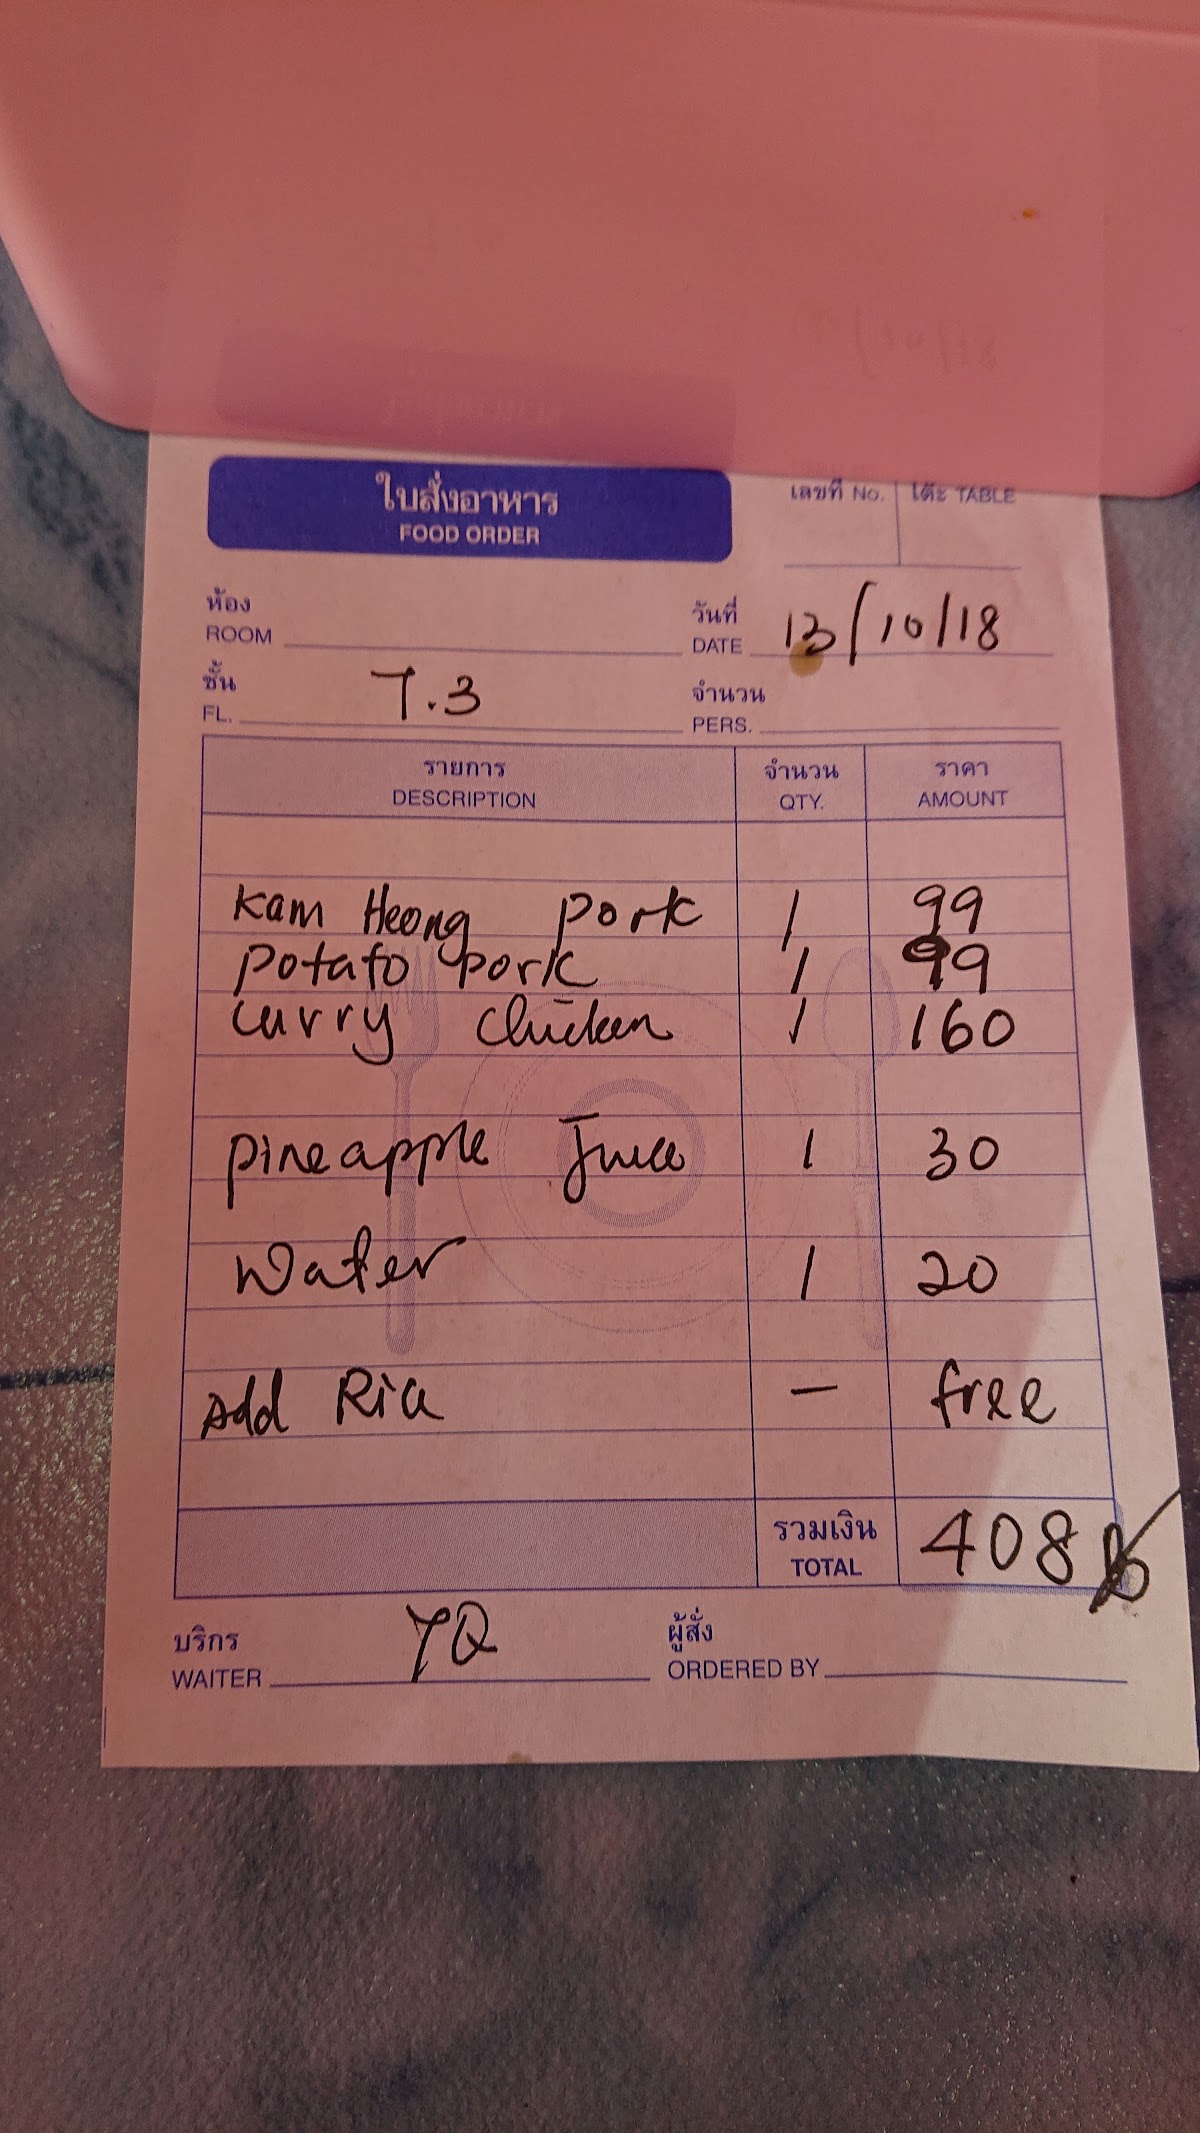 ใบสั่งอาหาร
FOOD ORDER
เลขที่ No. โต๊ะ TABLE
ห้อง
ROOM
วันที่
DATE 13/10/18
ชั้น
FL. T.3
จำนวน
PERS.
รายการ จำนวน ราคา
DESCRIPTION QTY. AMOUNT
Kam Heong pork 1 99
potato pork 1 99
curry chicken 1 160
pineapple Juice 1 30
Water 1 20
Add Rice — free
รวมเงิน
TOTAL 408 B
บริกร
WAITER TQ
ผู้สั่ง
ORDERED BY